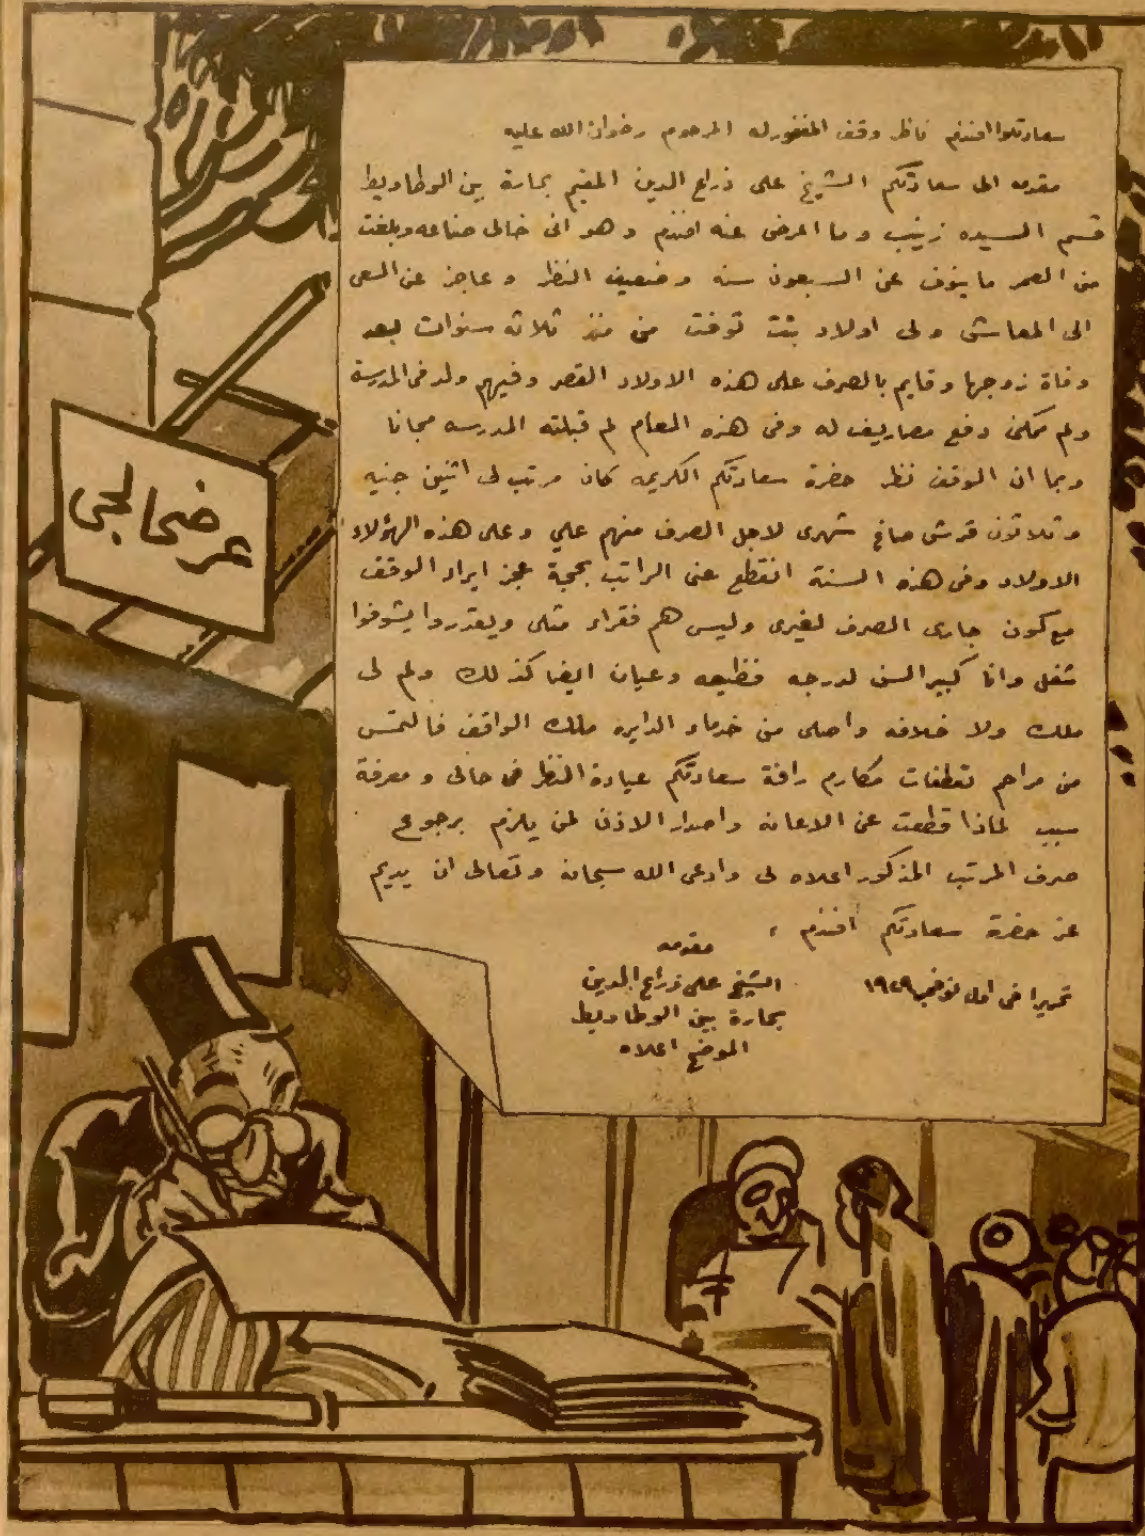 سعادتلوا افندم ناظر وقف المغفورله المرحوم رضوان الله عليه
مقدمه الى سعادتكم الشيخ على ذراع الدين المقيم بحارة بين الوطاويط
قسم السيده زينب وما اعرض عنه افندم وهو انى خالى صناعه وبلغت
من العمر ما ينوف عن السبعون سنه وضعيف النظر وعاجز عن السعى
الى المعاش ولى اولاد بنت توفت من منذ ثلاثه سنوات بعد
وفاة زوجها وقايم بالصرف على هذه الاولاد القصر وفيهم ولد فى المدرسة
ولم يمكنى دفع مصاريف له وفى هذه العام لم قبلته المدرسه مجانا
وبما ان الوقف نظر حضرة سعادتكم الكريمه كان مرتب لى اثنين جنيه
وثلاثون قرش صاغ شهرى لاجل الصرف منهم علي وعلى هذه الهؤلاء
الاولاد وفى هذه السنة انقطع عنى الراتب بحجة عجز ايراد الوقف
مع كون جارى الصرف لغيرى وليس هم فقراء مثلى ويقدروا يشوفوا
شغل وانا كبير السن لدرجه فظيعه وعيان ايضا كذلك ولم لى
ملك ولا خلافه واصلى من خدماء الدايره ملك الواقف فالتمس
من مراحم تعطفات مكارم رافة سعادتكم عيادة النظر فى حالى ومعرفة
سبب لماذا قطعت عنى الاعانه واصدار الاذن لمن يلزم برجوع
صرف المرتب المذكور اعلاه لى وادعى الله سبحانه وتعالى ان يديم
عز حضرة سعادتكم افندم ،
تحريرا فى اول نوفمبر ١٩٢٩
مقدمه
الشيخ على ذراع الدين
بحارة بين الوطاويط
الموضح اعلاه
عرضحالجى